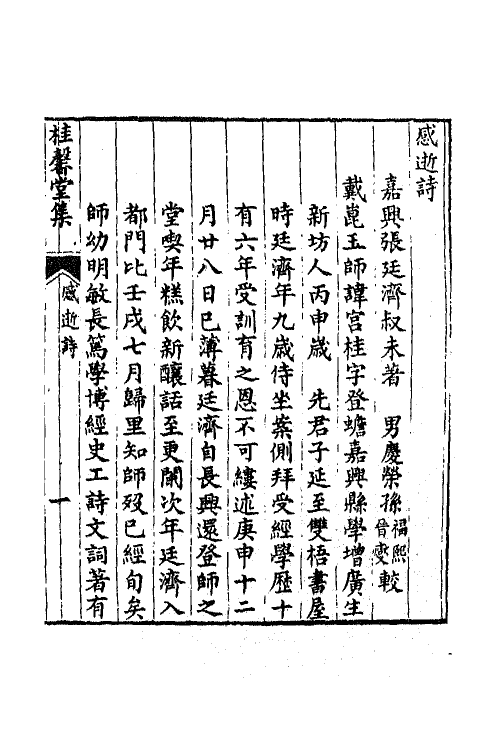 感逝詩
嘉興張廷濟叔未著　男慶榮孫福熙晉燮較
戴崑玉師諱宮桂字登蟾嘉興縣學增廣生
新坊人丙申歲　先君子延至雙梧書屋
時廷濟年九歲侍坐案側拜受經學歷十
有六年受訓育之恩不可縷述庚申十二
月廿八日已薄暮廷濟自長興還登師之
堂喫年糕飲新釀話至更闌次年廷濟入
都門比壬戌七月歸里知師歿已經旬矣
師幼明敏長篤學博經史工詩文詞著有
桂馨堂集　感逝詩　一